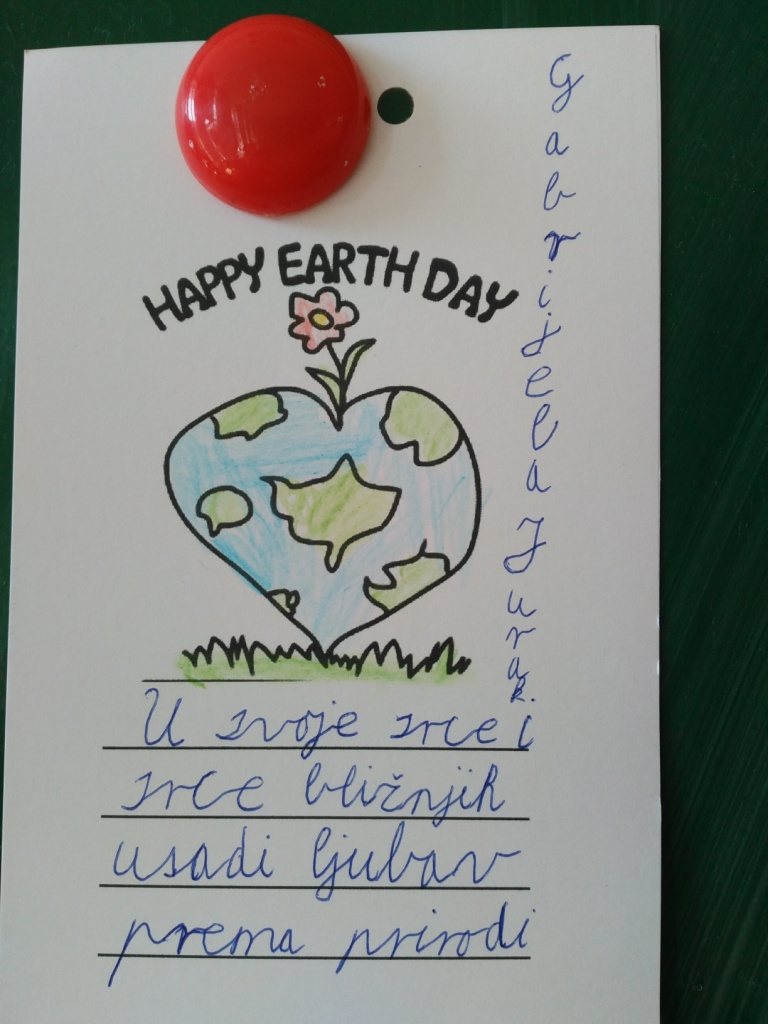 HAPPY EARTH DAY
Gabrijela Jurak.
U svoje srce i
srce bližnjih
usadi ljubav
prema prirodi